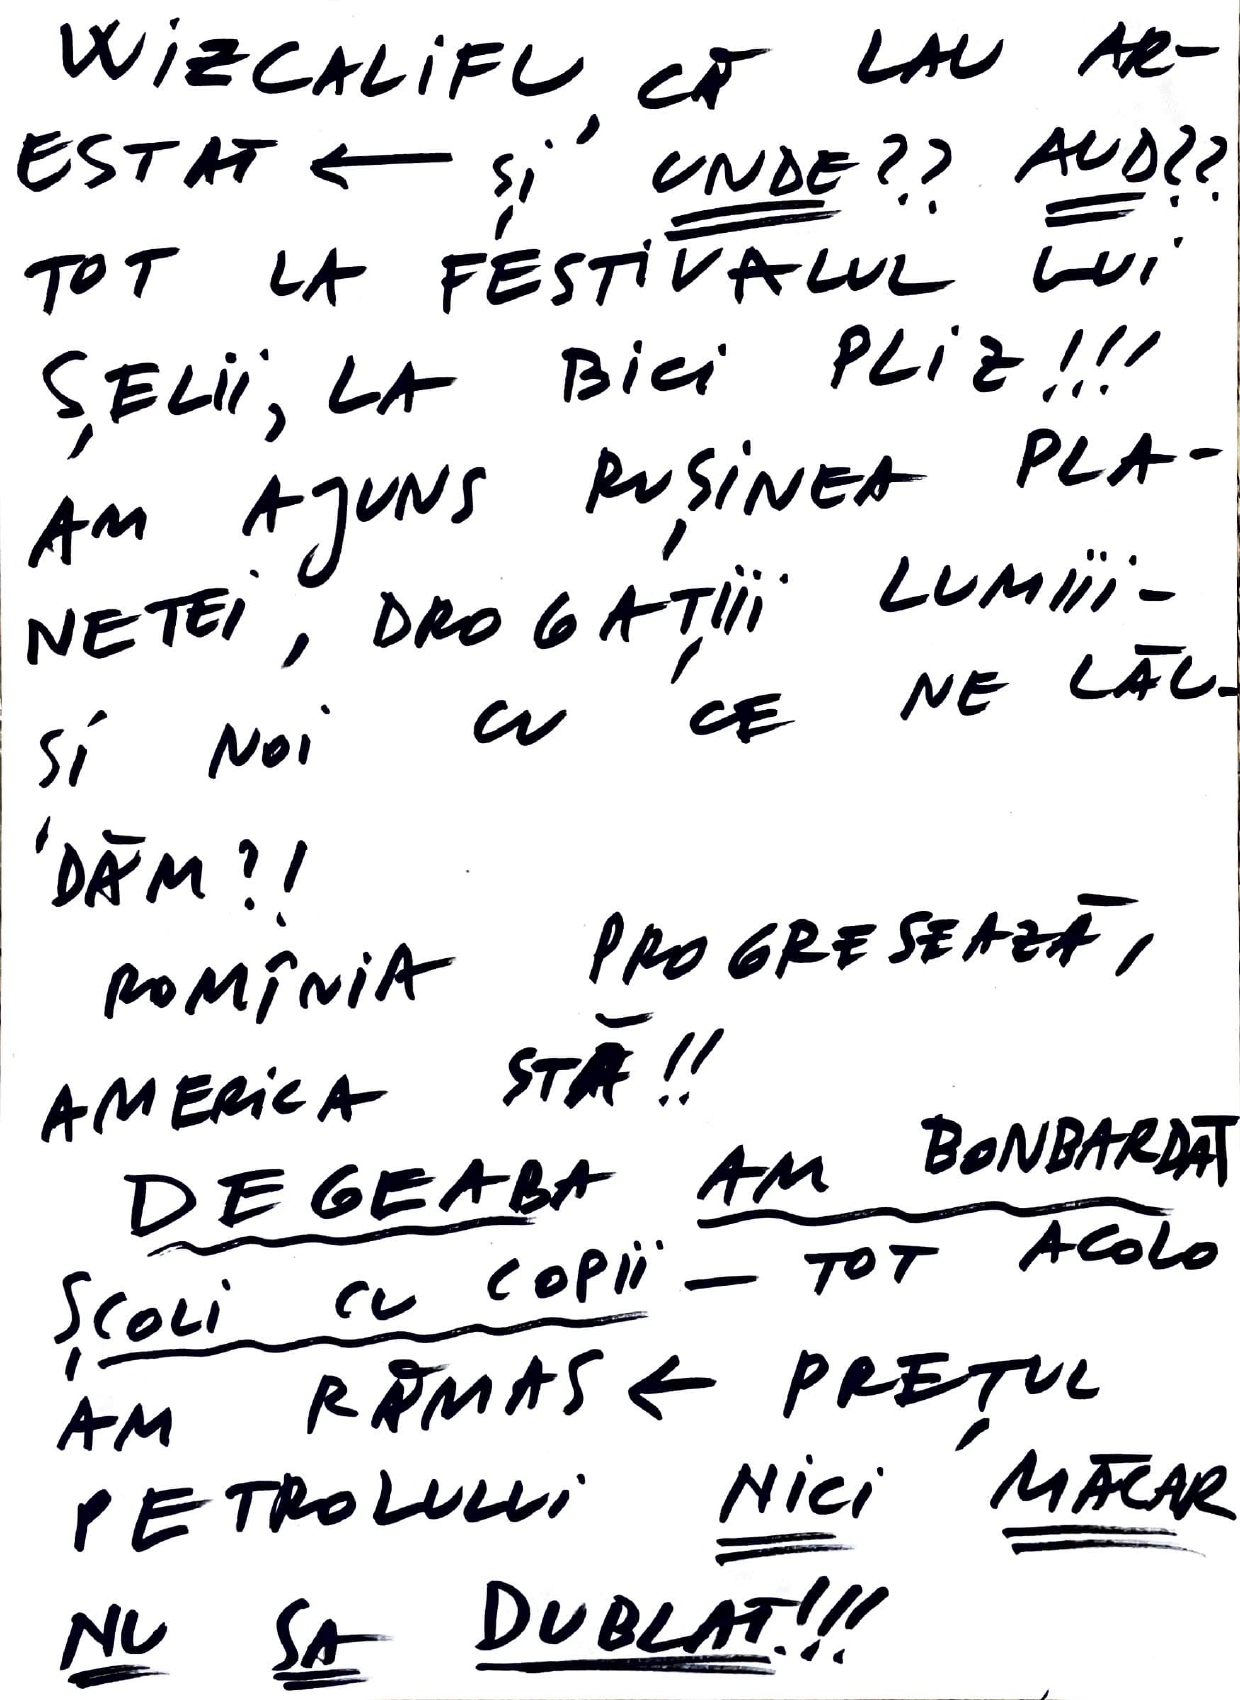 WiZCALiFU, CĂ LAU AR-
ESTAT ← Și UNDE?? AUD??
TOT LA FESTiVALUL LUi
ȘELii, LA BiCi PLiZ!!!
AM AJUNS RUȘiNEA PLA-
NETEi, DROGAȚiii LUMiii-
Și NOi CU CE NE LĂU-
DĂM?!
ROMÎNiA PROGRESEAZĂ,
AMERiCA STĂ!!
DEGEABA AM BONBARDAT
ȘCOLi CU COPii - TOT ACOLO
AM RĂMAS ← PREȚUL
PETROLULUi NiCi MĂCAR
NU SA DUBLAT!!!